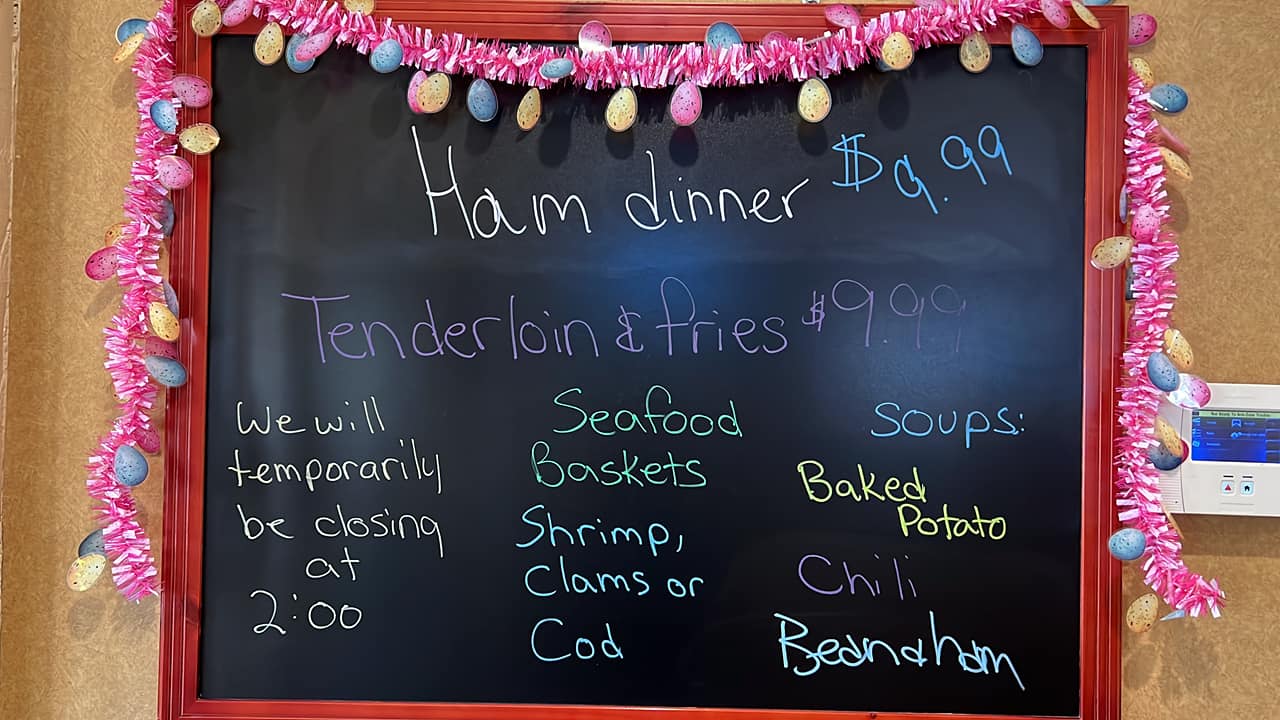 Ham dinner $9.99
Tenderloin & fries $9.99
We will
temporarily
be closing
at
2:00
Seafood
Baskets
Shrimp,
Clams or
Cod
Soups:
Baked
Potato
Chili
Bean & ham